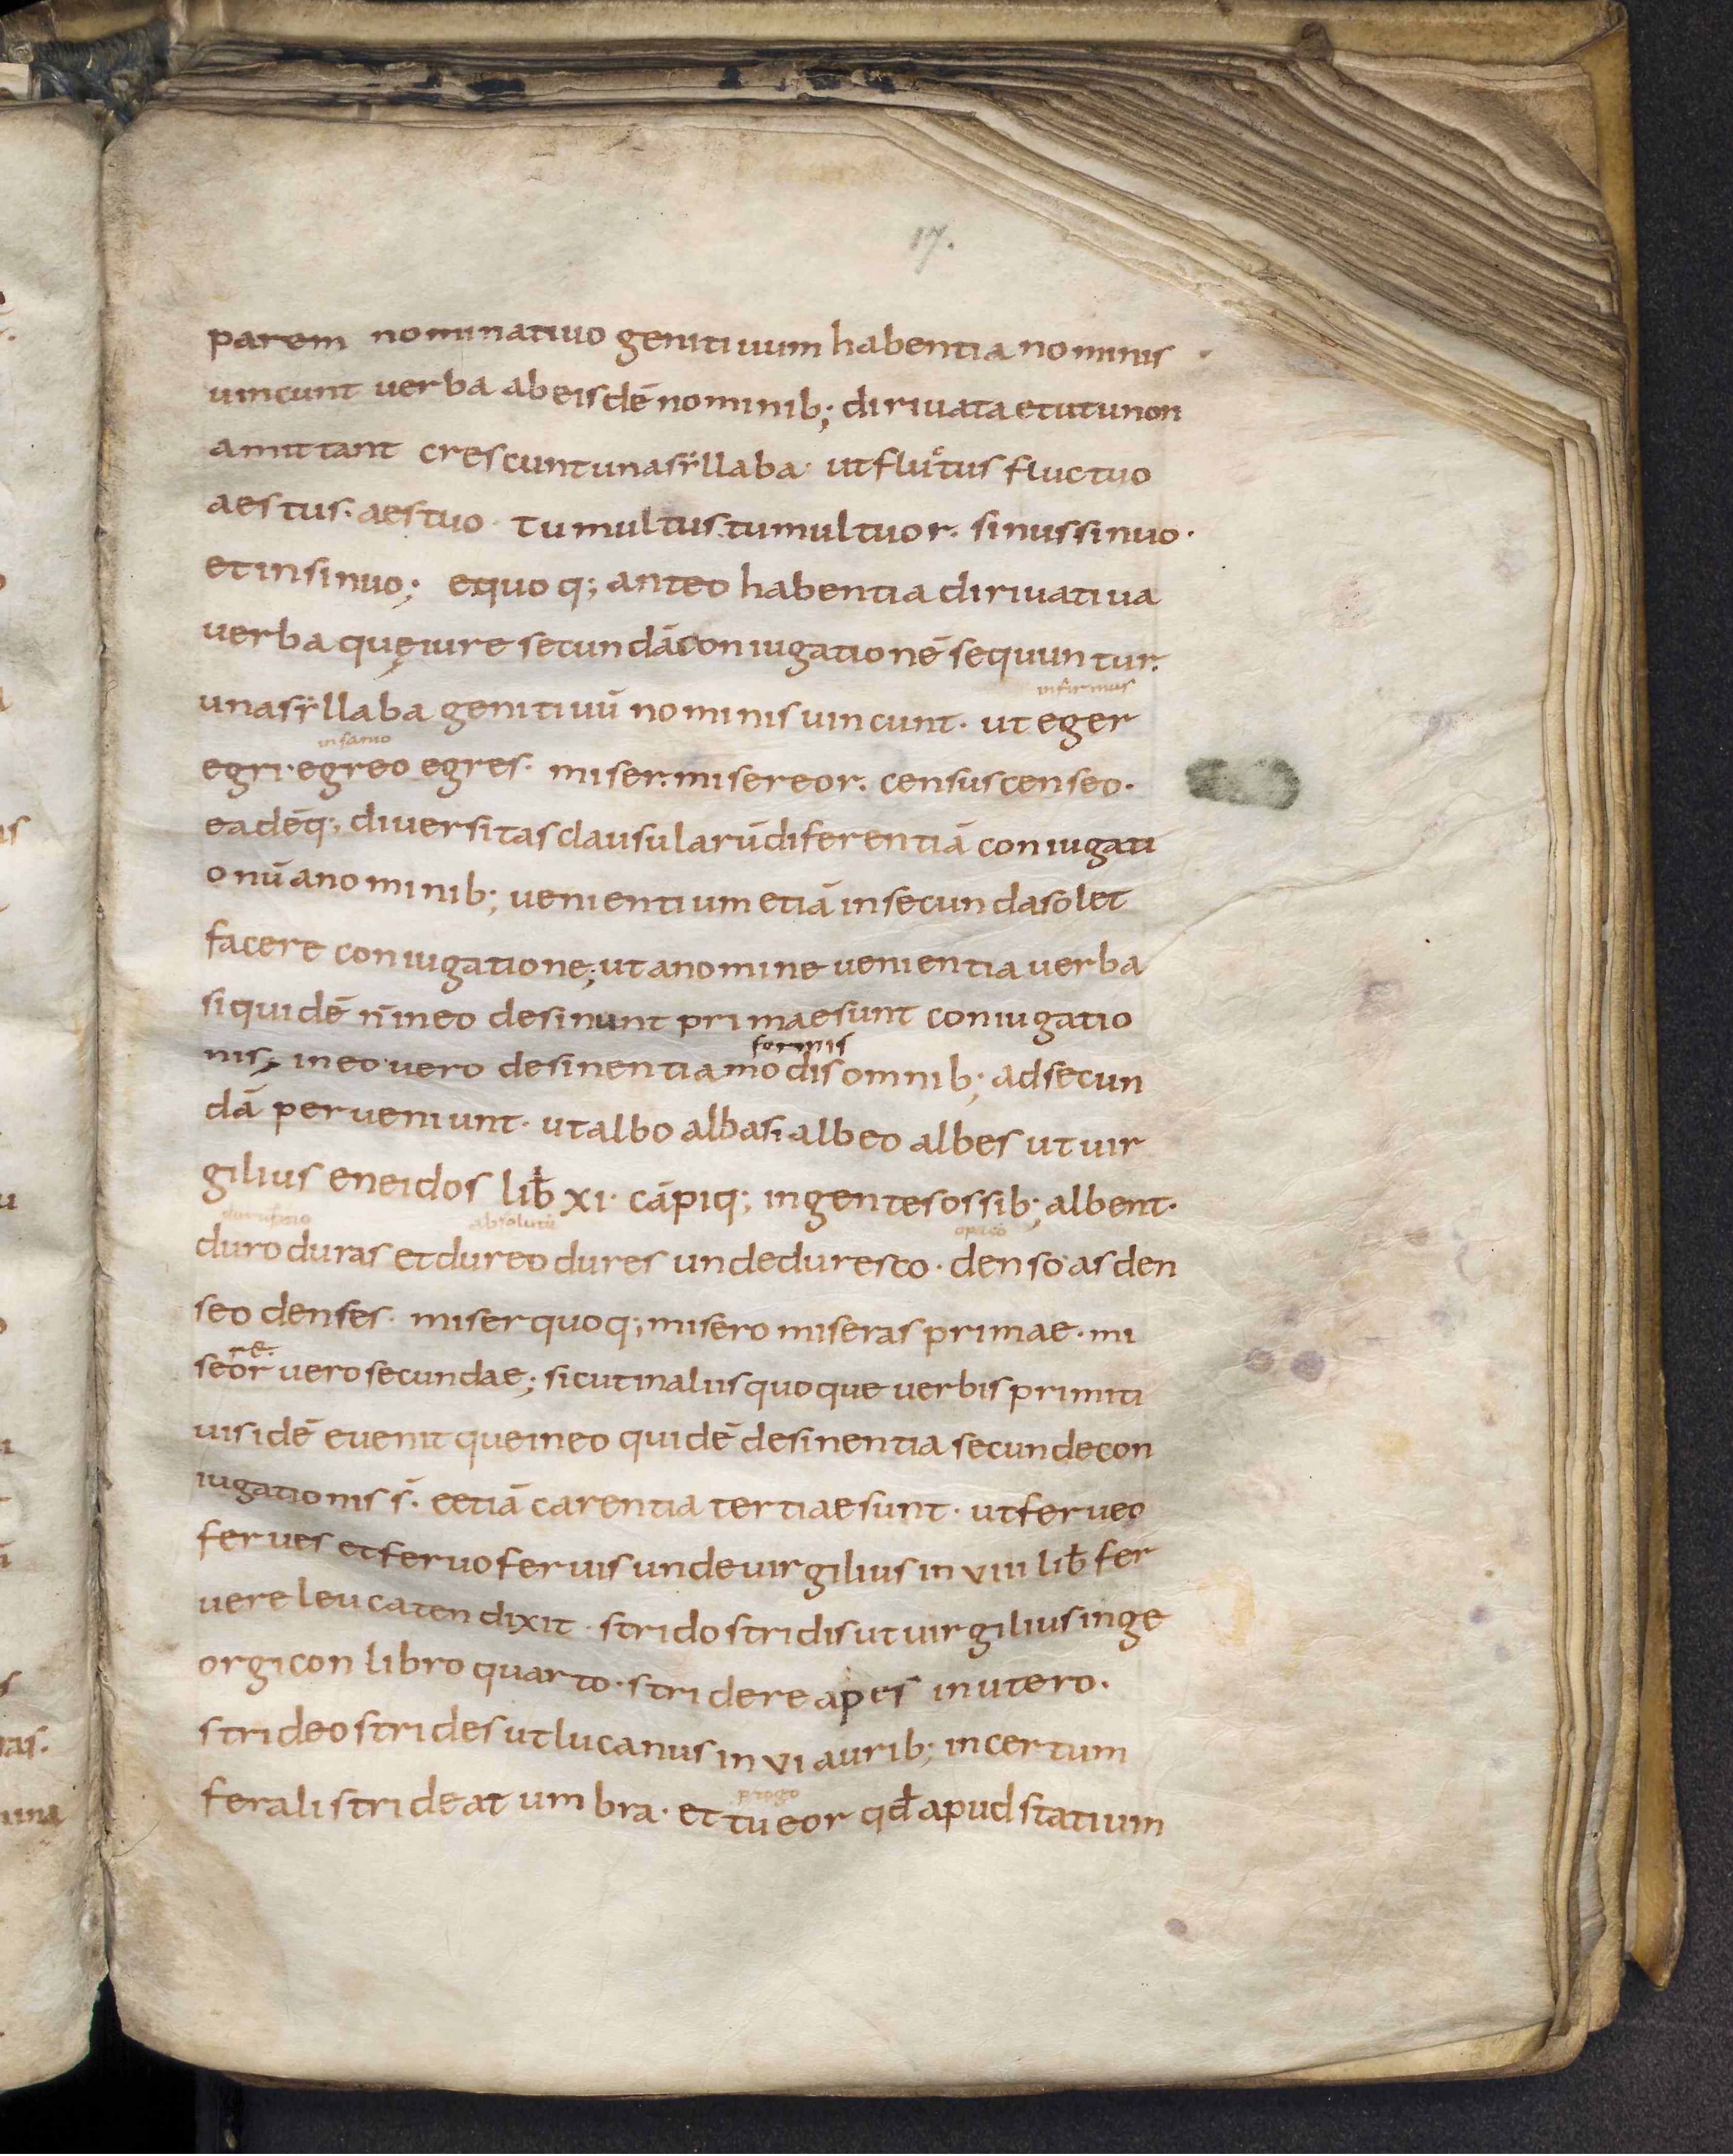 17.
parem nominatiuo genitiuum habentia nominis
uincunt uerba ab eisdē nominib; diriuata et ut u non
amittant crescunt una syllaba· ut fluctus fluctuo
aestus· aestuo· tumultus· tumultuor· sinus sinuo·
et insinuo; e quoq; ante o habentia diriuatiua
uerba quę iure secundā coniugationē sequuntur·
infirmus
una syllaba genitiuū nominis uincunt· ut eger
egri· egreo egres· miser· misereor· census censeo·
eadēq; diuersitas clausularū diferentiā coniugati
onū a nominib; uenientium etiā in secunda solet
facere coniugatione; ut a nomine uenientia uerba
siquidē n̄ in eo desinunt primae sunt coniugatio
formis
nis; in eo uero desinentia modis omnib; ad secun
dā perueniunt· ut albo albasi albeo albes ut uir
gilius eneidos lib̄ xi· cāpiq; ingentes ossib; albent·
duro duras et dureo dures unde duresco· denso as den
seo denses· miser quoq; misero miseras primae· mi
re
seor uero secundae; sicut in aliis quoque uerbis primiti
uis idē euenit que in eo quidē desinentia secunde con
iugationis s̄· e etiā carentia tertiae sunt· ut ferueo
ferues et feruo feruis unde uirgilius in viii lib̄ fer
uere leucaten dixit· strido stridis ut uirgilius in ge
orgicon libro quarto· stridere apes in utero·
strideo strides ut lucanus in vi aurib; incertum
ferali strideat umbra· et tueor qd̄ apud statium